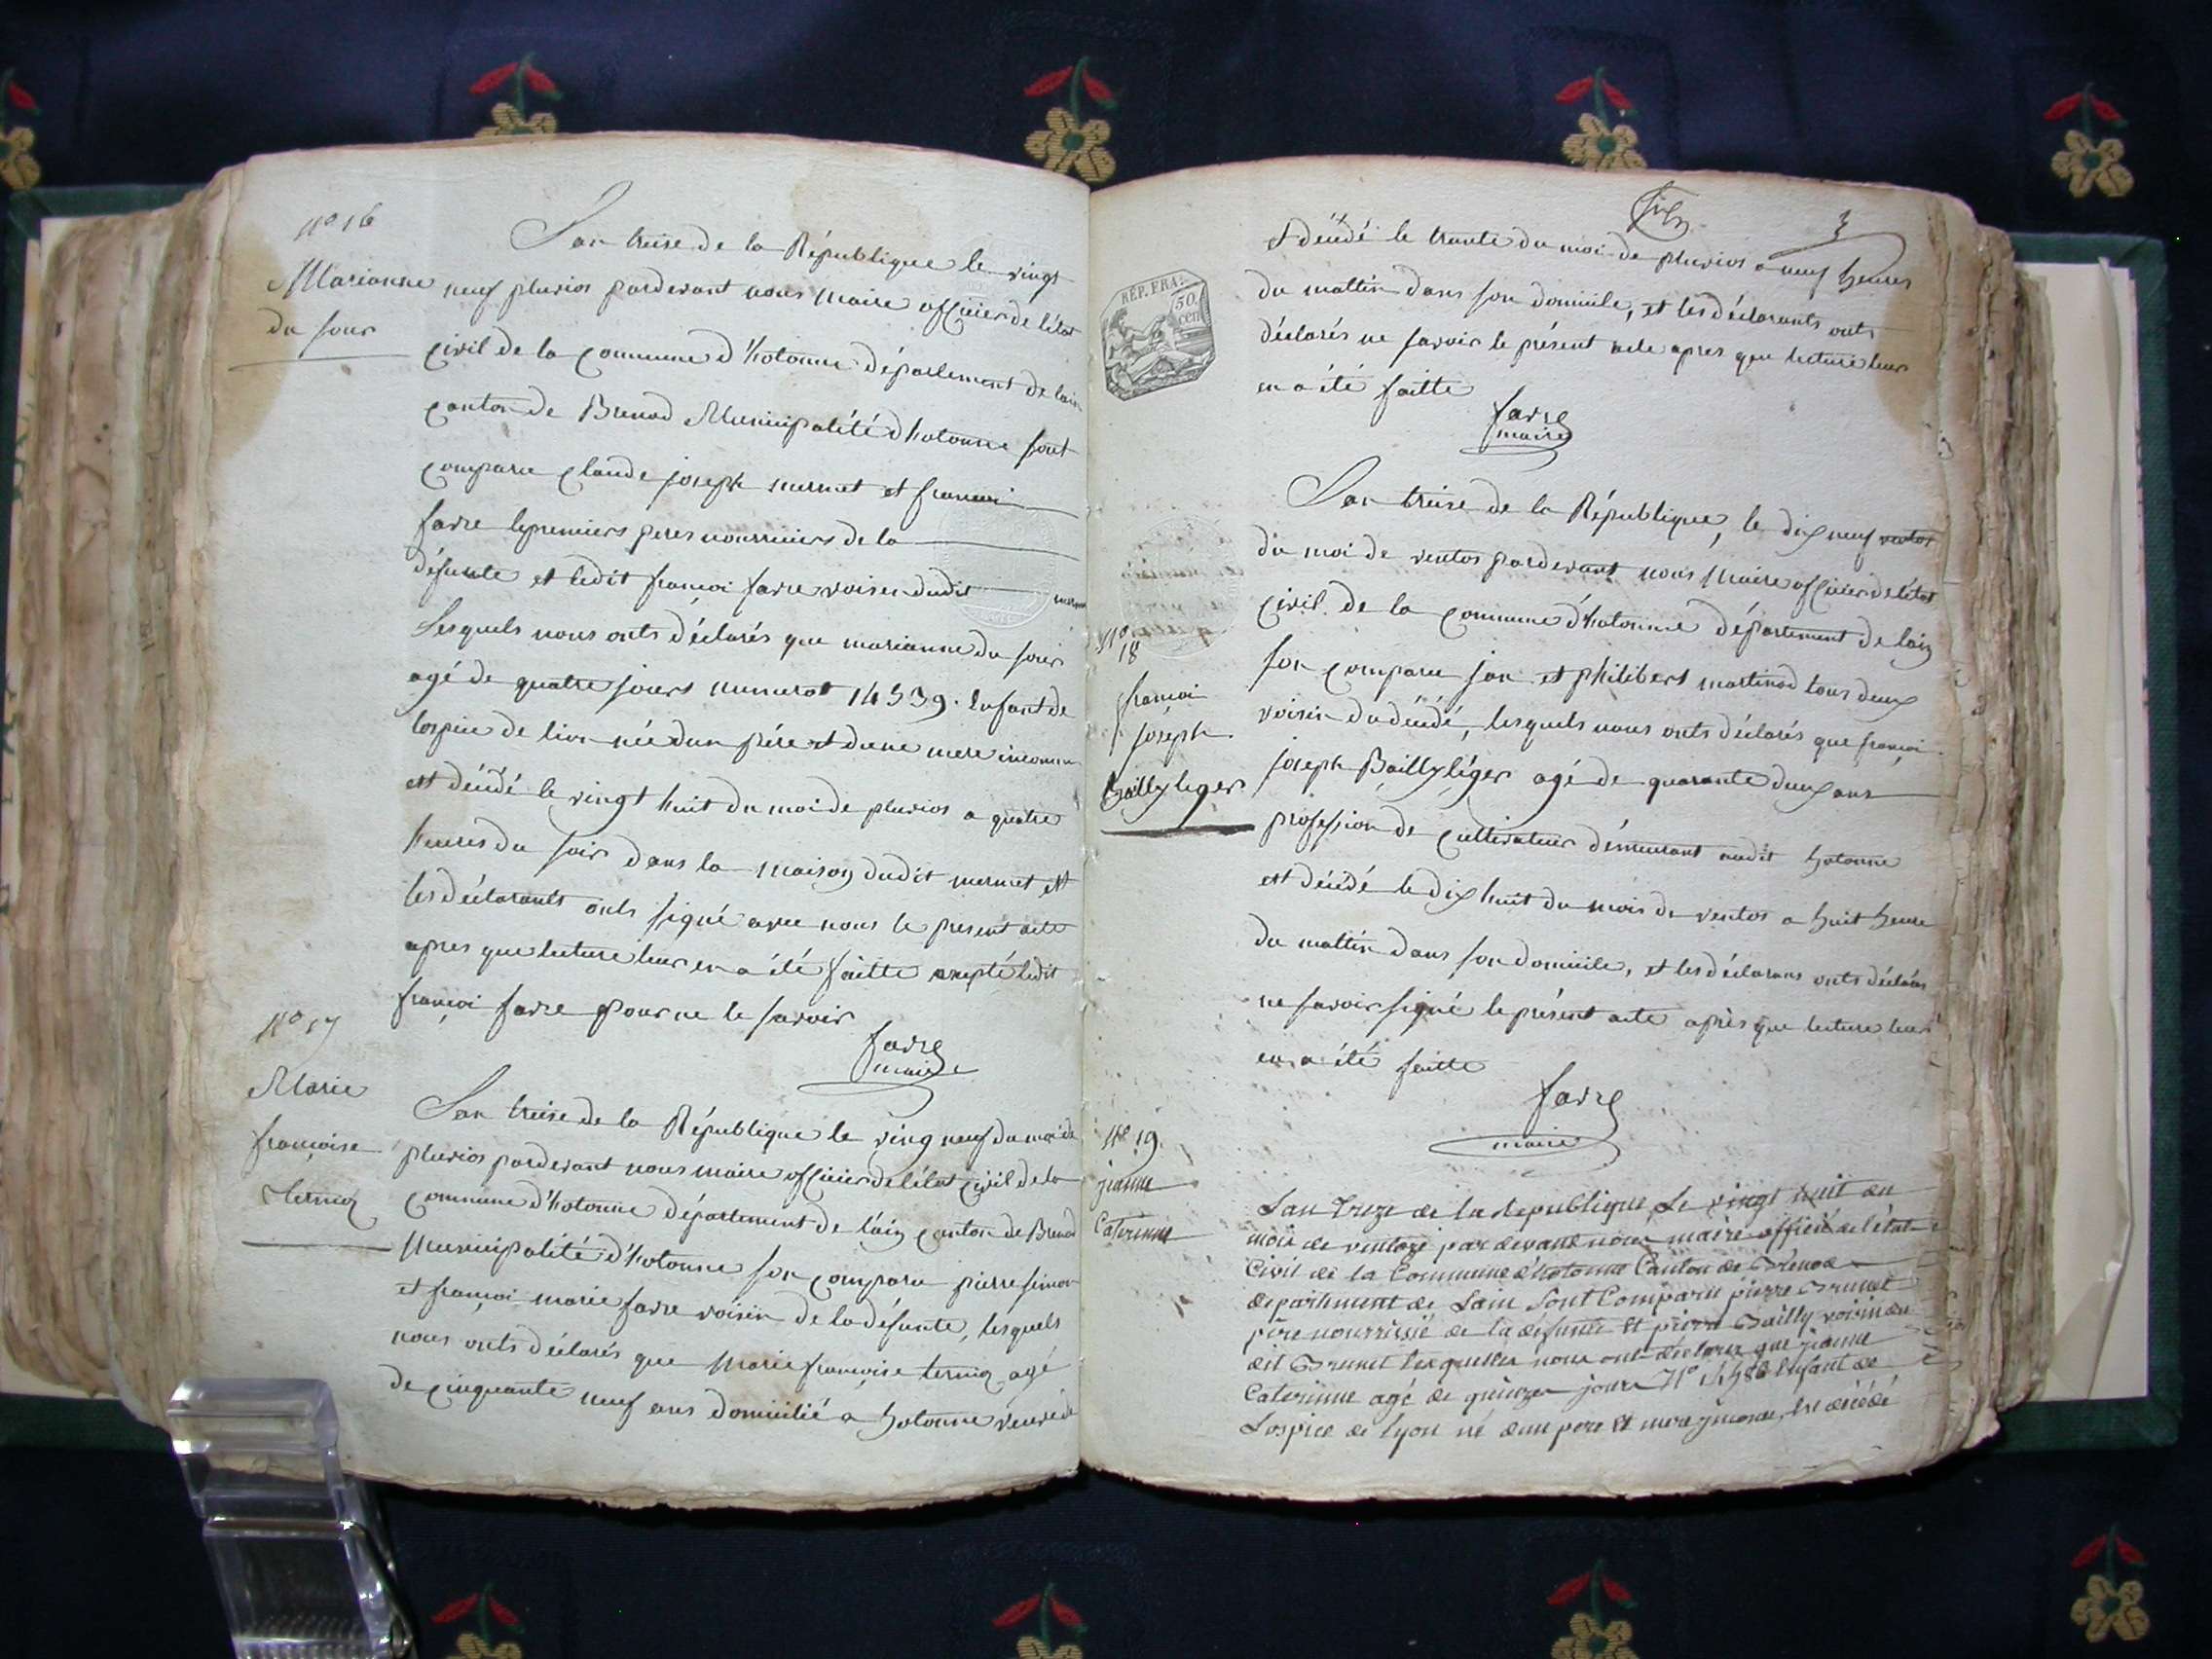 N° 16
Marianne
du four
L'an treise de la République le vingt
neuf pluvios pardevant nous maire officier de létat
civil de la commune d'hotonne département de lain
canton de Brenod Municipalité d'hotonne sont
comparu claude joseph mermet et francoi
favre le premiers peres nourriciers de la
défunte et ledit françoi favre voisin dudit mermet
Lesquels nous onts déclarés que marianne du four
agé de quatre jours numerot 14539. Enfant de
lospice de lion née dun pére et dune mere inconnu
est décédé le vingt huit du moi de pluvios a quatre
heures du soir dans la maison dudit mermet et
les déclarants onts signé avec nous le present acte
apres que lecture leur en a été faitte excepté ledit
françoi favre pour ne le savoir
favre
maire
N° 17
Marie
françoise
ternoz
L'an treise de la République le ving neuf du moi de
pluvios pardevant nous maire officier de létat civil de la
commune d'hotonne département de l'ain canton de Brenod
Municipalité d'hotonne son comparu pierre simon
et françoi marie favre voisin de la défunte, lesquels
nous onts déclarés que Marie françoise ternoz agé
de cinquante neuf ans domicilié a hotonne
3
RÉP. FRA.
50
cen
et décédé le trante du moi de pluvios a neuf heures
du mattin dans son domicile, et les déclarants onts
déclarés ne savoir le présent acte apres que lecture leur
en a été faitte
favre
maire
N°
18
françoi
joseph
Bailly leger
L'an treise de la République, le dix neuf ventos
du moi de ventos pardevant nous Maire officier de létat
civil de la commune d'hotonne département de lain
son comparu jan et philibert martinod tous deux
voisin du décédé, lesquels nous onts déclarés que françoi
joseph Bailly léger agé de quarante deux ans
profession de cultivateur démeurant audit hotonne
est décédé le dix huit du mois de ventos a huit heure
du mattin dans son domicile, et les déclarans onts déclarés
ne savoir signé le présent acte après que lecture leur
en a été faitte
favre
maire
N° 19
jianne
Caterinne
L'an treze de la République, Le vingt huit du
mois de ventose par devant nous maire officié de létat
Civil de la Commune d'hotonne Canton de Brenod
département de Lain Sont Comparu pierre Brunet
père nourrissié de la défunte et pierre Bailly voisin du
dit Brunet lesquelles nous ont déclarez que jianne
Caterinne agé de quinze jours N° Enfant de
Lospice de Lyon né dun pere et mere est décédé